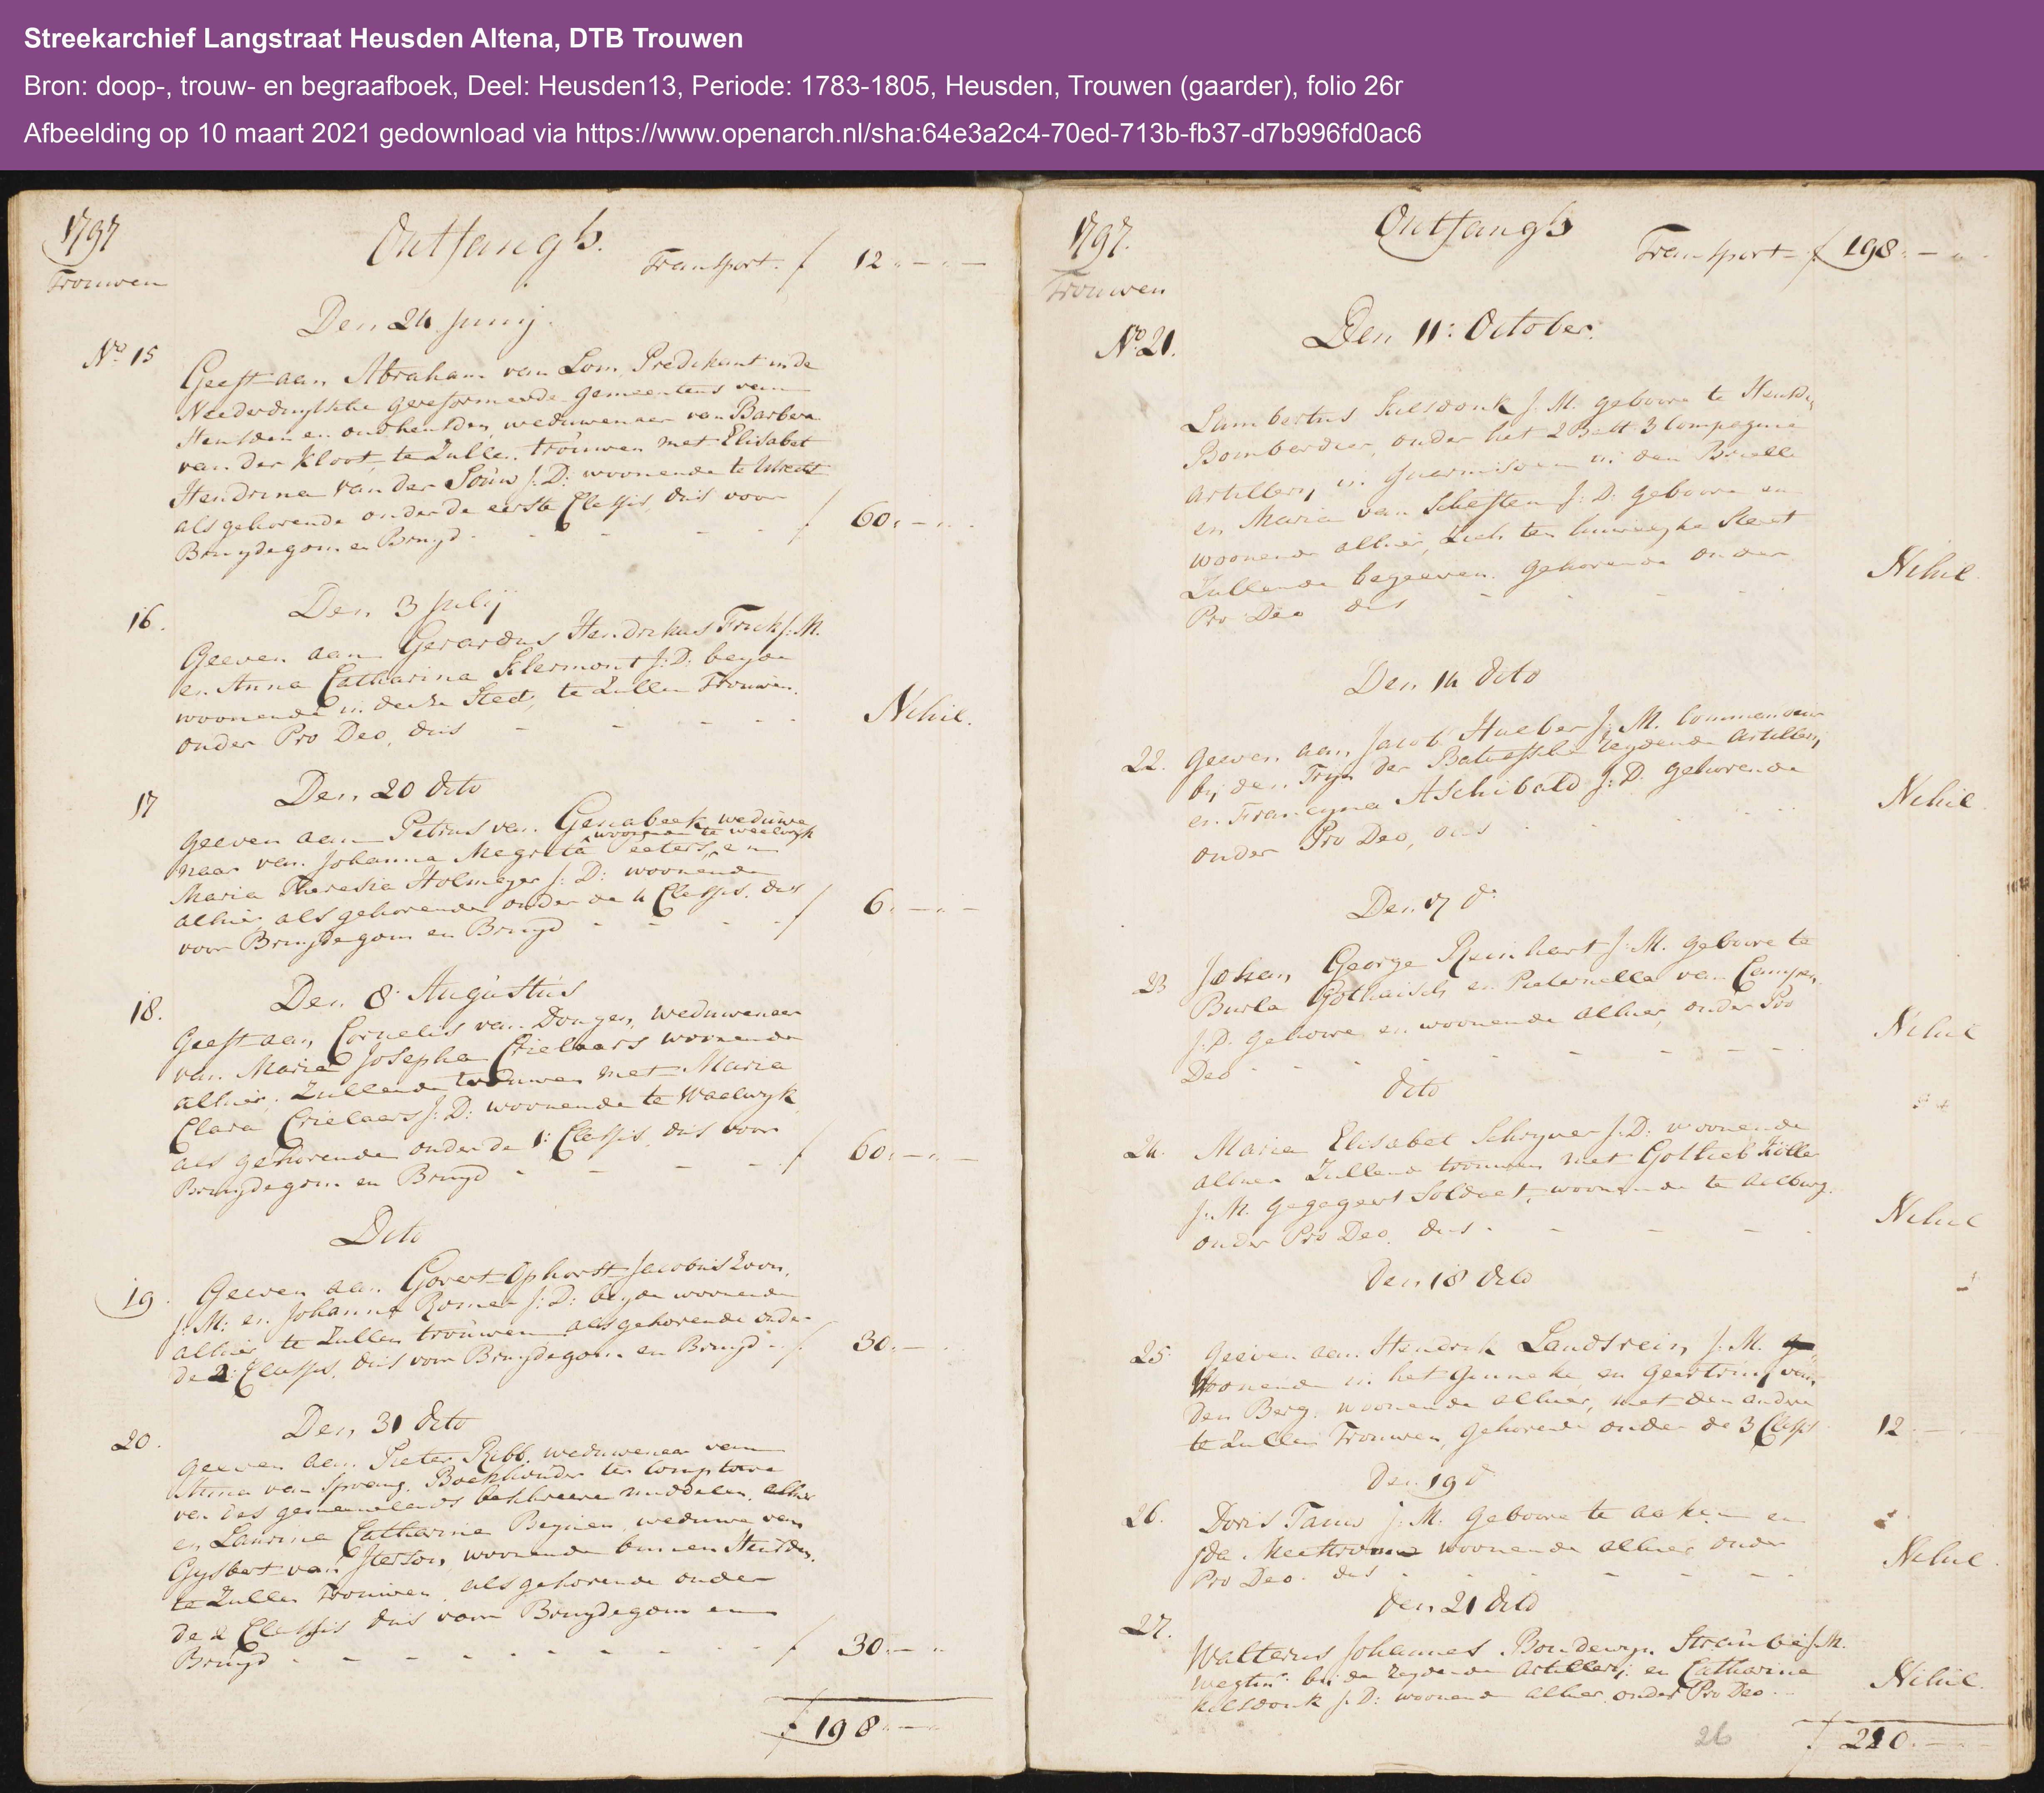 Streekarchief Langstraat Heusden Altena, DTB Trouwen
Bron: doop-, trouw- en begraafboek, Deel: Heusden13, Periode: 1783-1805, Heusden, Trouwen (gaarder), folio 26r
Afbeelding op 10 maart 2021 gedownload via https://www.openarch.nl/sha:64e3a2c4-70ed-713b-fb37-d7b996fd0ac6
1797
Ontfangst.
Trouwen
Transport. f 12 " — " —
Den 24 Junij.
No. 15
Geeft aan Abraham van Lom, Predikant in de
Neederduytsche gereformeerde gemeentens van
Heusden en oudheusden, weduwenaer van Barbera
van der Kloot, te Zullen trouwen met Elisabet
Hendrina van der Souw J: D: woonende te Utrecht
als gehorende onder de eerste Classis, dus voor
Bruydegom en Bruyd - - - - f 60 " — "
Den 3 Julij
16.
Geeven aan Gerardus Hendrikus Frick J: M.
en Anna Catharina Klermont J: D: beyde
woonende in deeze Stad, te Zullen Trouwen.
onder Pro Deo, dus - - - - Nihil.
Den 20 dito
17
geeven aan Petrus van Genabeek weduwe
woonende te waelwyk
naar van Johanna Megrita Peeters, en
Maria Theresia Holmeyer J: D: woonende
alhier als gehorende onder de 4 Classis. dus
voor Bruydegom en Bruyd - - - f 6 " — " —
Den 8 Augustus
18.
Geeft aan Cornelis van Dongen, weduwenaer
van Maria Josepha Crielaars woonende
alhier, Zullende trouwen met Maria
Clara Crielaars J: D: woonende te Waelwyk
als gehorende onder de 1: Classis, dus voor
Bruydegom en Bruyd - - - - f 60 " — " —
Dito
19.
Geeven aan Govert Ophorst Jacobus Zoon,
J: M: en Johanna Romer J: D: beyde woonende
alhier te Zullen trouwen als gehorende onder
de 2: Classis, dus voor Bruydegom en Bruyd - f 30 " —
Den 31 dito
20.
geeven aan Pieter Ribb. weduwenaar van
Anna van Sprang. Boekhouder ten Comptoire
van des gemeenelands middelen, alhier
en Laurina Catharina Beynen, weduwe van
Gysbert van Iterson, woonende binnen Heusden.
te Zullen Trouwen, als gehorende onder
de 2 Classis dus voor Bruydegom en
Bruyd - - - - - - - f 30 " — "
f 198 " — "
1797.
Ontfangst
Trouwen
Transport - f 198 " — "
Den 11: October.
No. 21.
Lambertus Kilsdonk J. M. geboore te Heusden
Bombardier, onder het 2 Batt: 3 Compagnie
Artillery, in guarnisoen in den Brielle
en Maria van Scheften J: D: geboore en
woonende alhier, Zich ten huwelyke Staet
Zullende begeeven. gehorende onder
Pro Deo dus - - - - Nihil.
Den 14 dito
22.
geeven aan Jacob Hueber J: M. Commandeur
bij den Tryn der Bataefsche reydende Artillery
en Francyna Aschibald J: D: gehorende
onder Pro Deo, dus - - - Nihil
Den 17 do
23
Johan George Reinhart J: M. geboore te
Burla Gothaisch en Pieternella van Campen,
J: D: geboore en woonende alhier, onder Pro
Deo - - - - - - Nihil
dito
24.
Maria Elisabet Schryver J: D: woonende
alhier Zullende trouwen met Gotlieb Köller
J: M. gegageert Soldaet, woonende te Aelburg.
onder Pro Deo, dus - - - - Nihil
Den 18 dito
25.
geeven aan Hendrik Landsrein J: M.
Woonende in het Ginneke en Geertruy van
den Berg. woonende alhier, met den andere
te Zullen Trouwen, gehorende onder de 3 Classis 12 " —
Den 19 do
26.
Doris Tanis J: M. geboore te aaken en
Ida woonende alhier onder
Pro Deo. dus - - - - - Nihil.
Den 21 dito
27.
Walterus Johannes Boudewyn Straube J: M.
bij de reydende Artillery en Catharina
Kilsdonk J: D: woonende alhier onder Pro Deo - Nihil.
26
f 210 " —